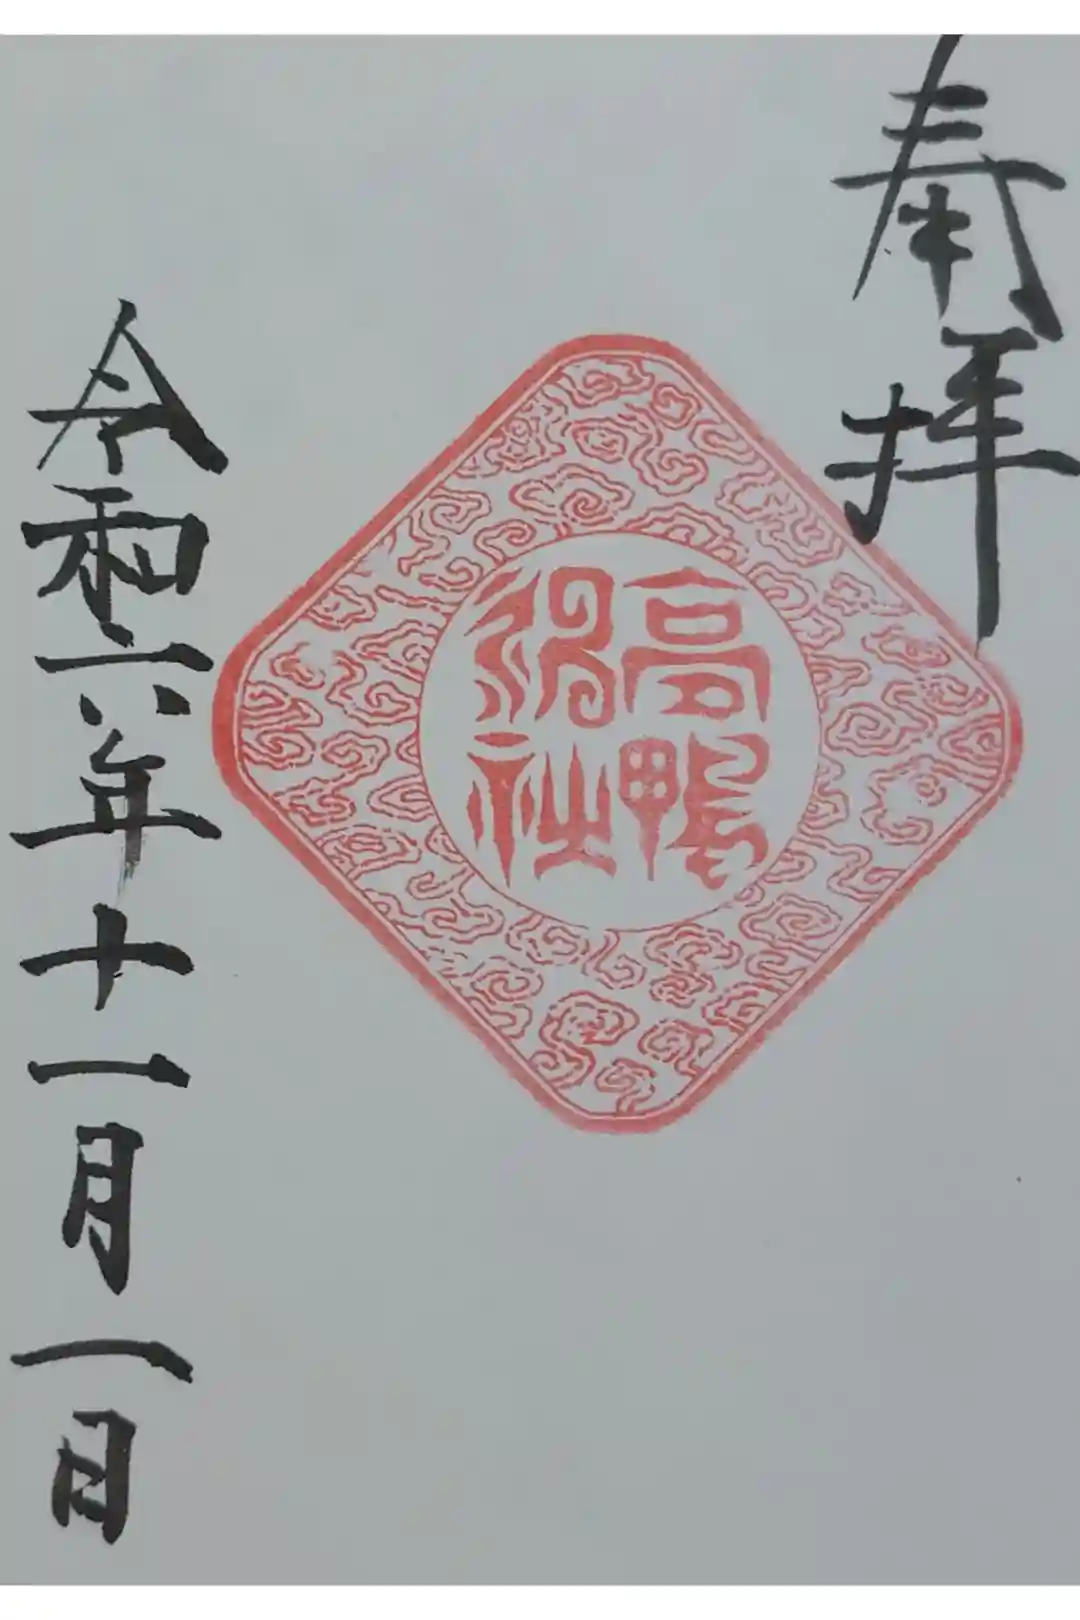 奉拝
高鴨
御社
令和六年十一月一日